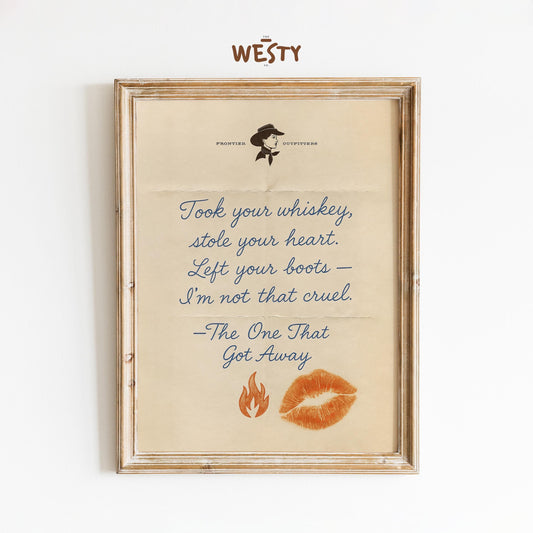 THE
WESTY
CO.
FRONTIER OUTFITTERS
Took your whiskey,
stole your heart.
Left your boots –
I'm not that cruel.
–The One That
Got Away